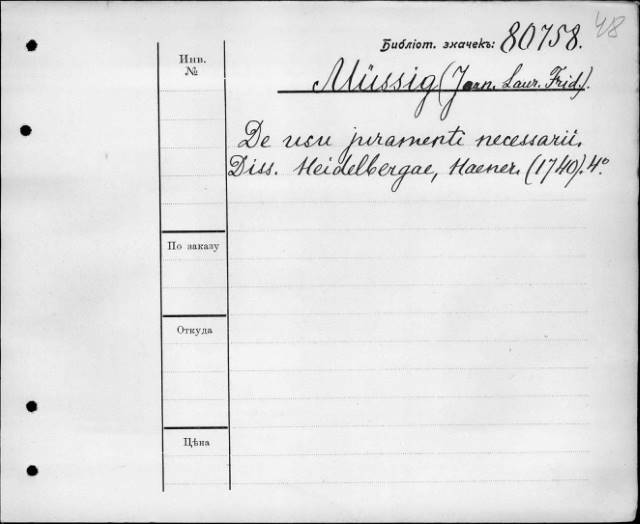 48
Библіот. значекъ: 80758.
Инв.
№
Müssig (Joan. Laur. Frid.).
De usu juramenti necessarii.
Diss. Heidelbergae, Haener. (1740). 4°
По заказу
Откуда
Цѣна